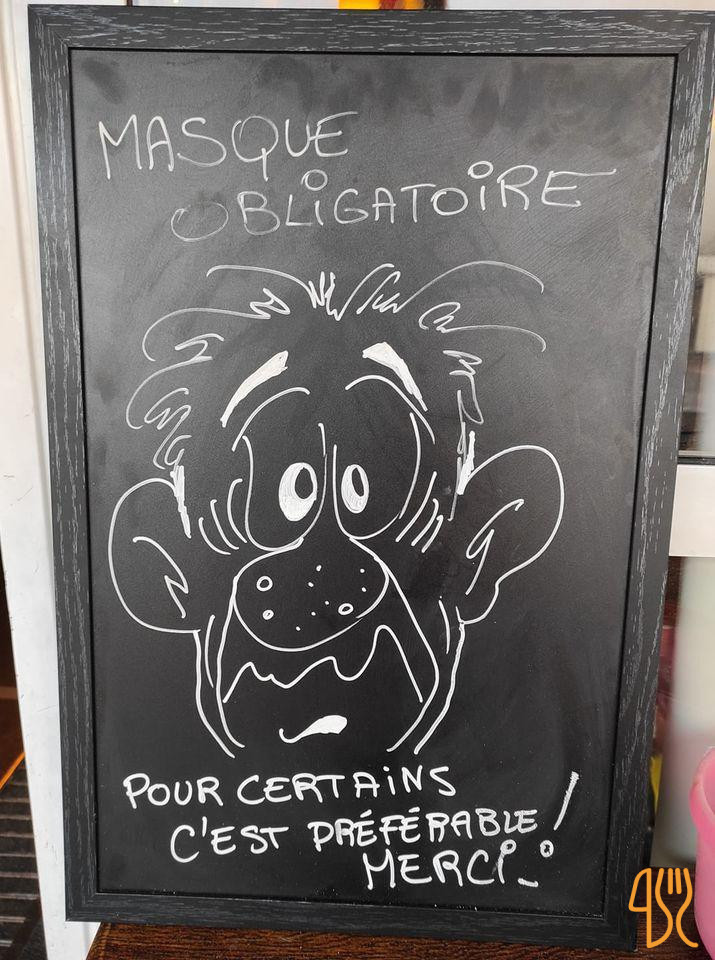 MASQUE
OBLiGATOiRE
POUR CERTAiNS
C'EST PRÉFÉRABLE !
MERCi